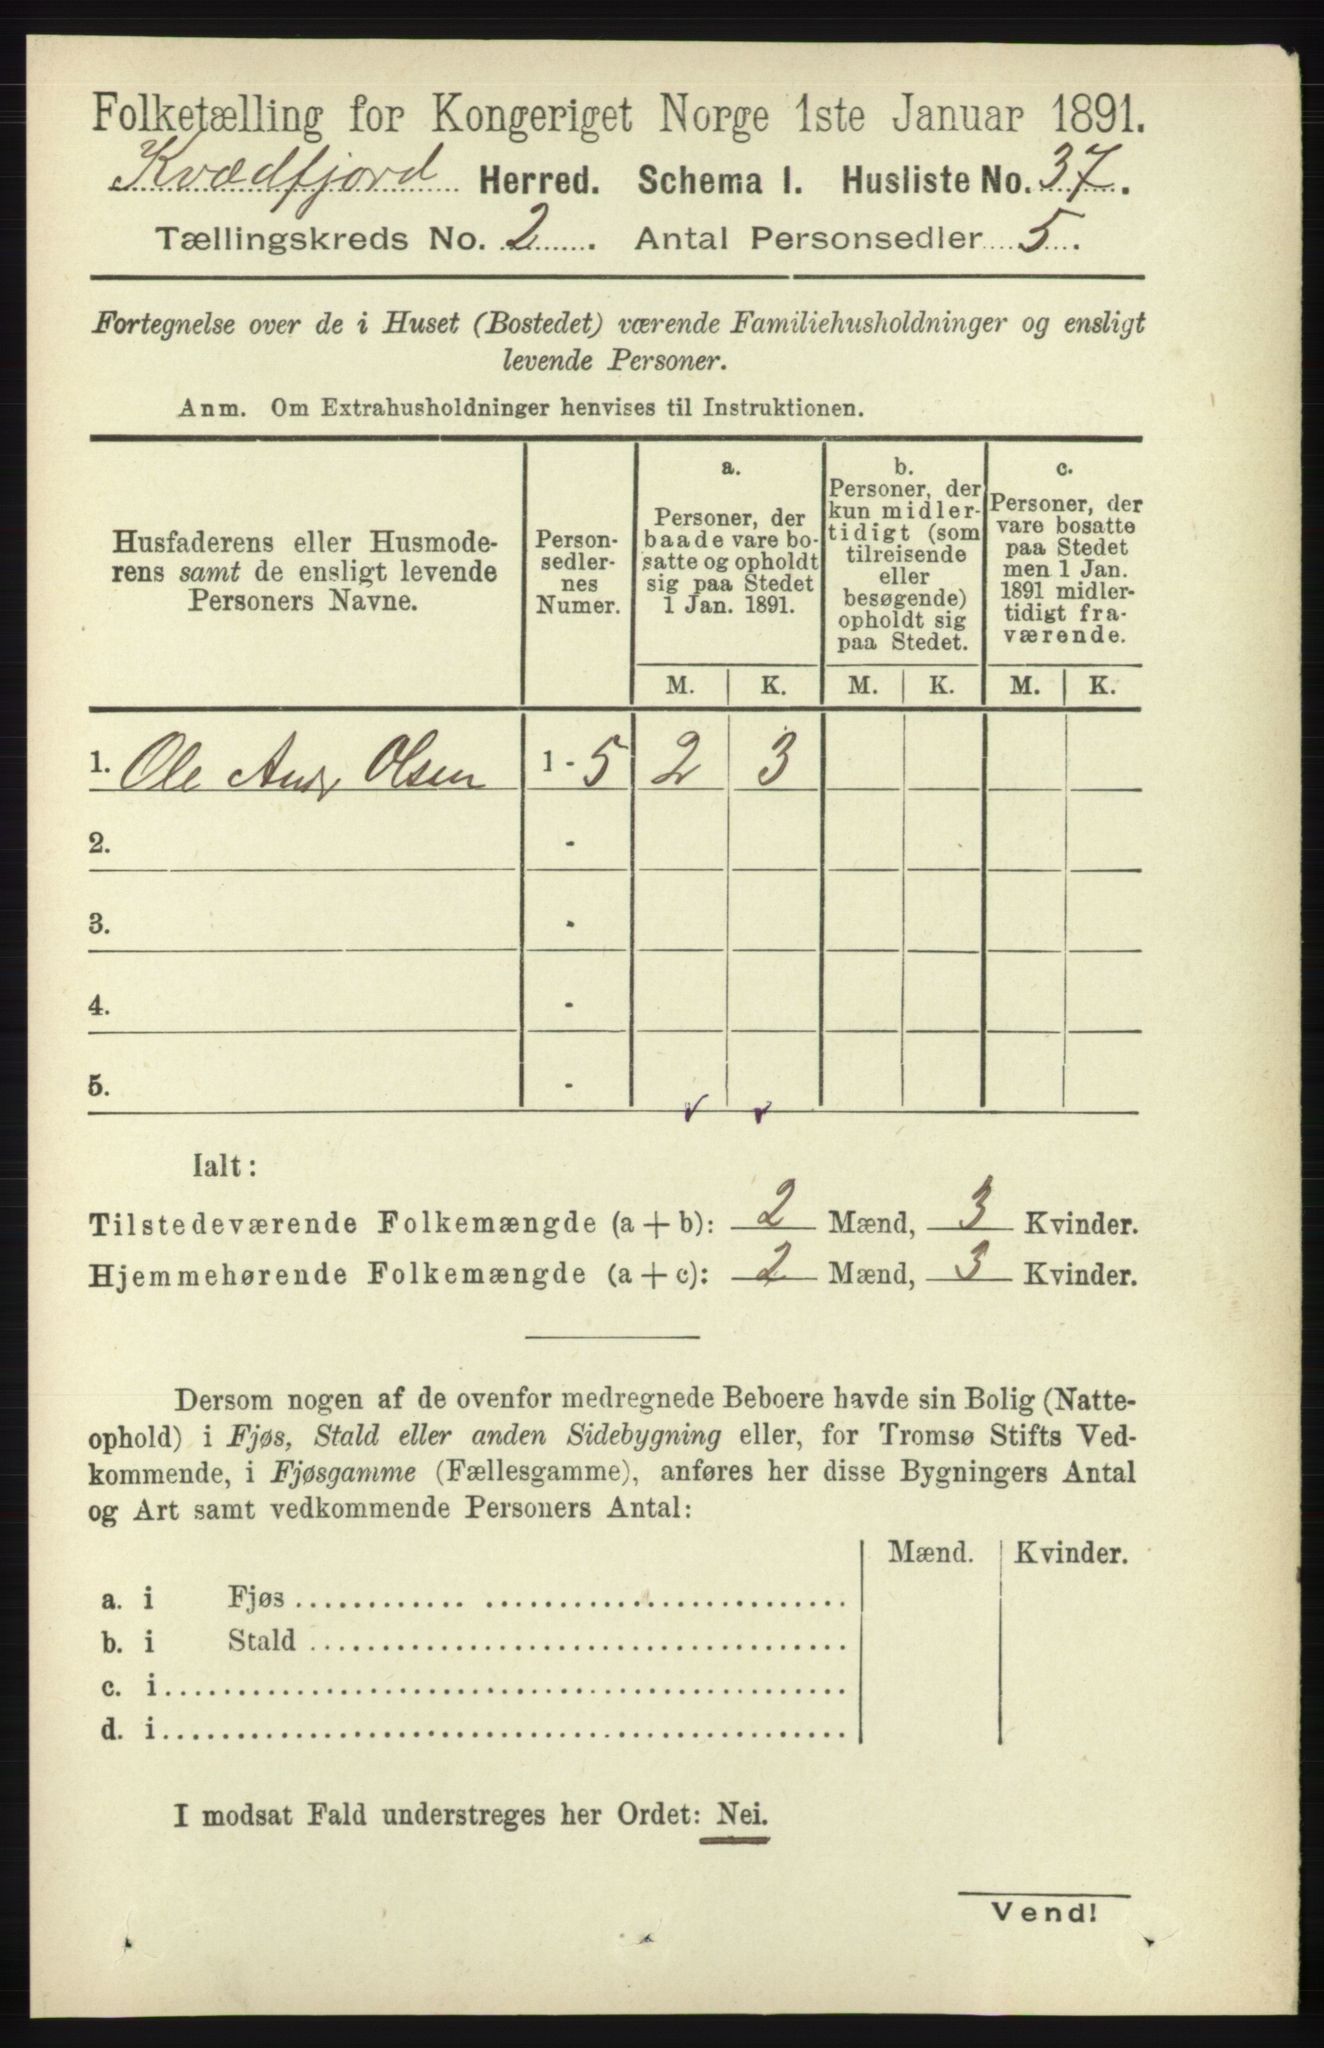 Folketælling for Kongeriget Norge 1ste Januar 1891.
Kvædfjord Herred. Schema I. Husliste No. 37.
Tællingskreds No. 2. Antal Personsedler 5.
Fortegnelse over de i Huset (Bostedet) værende Familiehusholdninger og ensligt
levende Personer.
Anm. Om Extrahusholdninger henvises til Instruktionen.
Husfaderens eller Husmode-
rens samt de ensligt levende
Personers Navne.
Person-
sedler-
nes
Numer.
a.
Personer, der
baade vare bo-
satte og opholdt
sig paa Stedet
1 Jan. 1891.
b.
Personer, der
kun midler-
tidigt (som
tilreisende
eller
besøgende)
opholdt sig
paa Stedet.
c.
Personer, der
vare bosatte
paa Stedet
men 1 Jan.
1891 midler-
tidigt fra-
værende.
M. K. M. K. M. K.
1. Ole Andr Olsen 1 - 5 2 3
2. -
3. -
4. -
5. -
Ialt:
Tilstedeværende Folkemængde (a + b): 2 Mænd, 3 Kvinder.
Hjemmehørende Folkemængde (a + c): 2 Mænd, 3 Kvinder.
Dersom nogen af de ovenfor medregnede Beboere havde sin Bolig (Natte-
ophold) i Fjøs, Stald eller anden Sidebygning eller, for Tromsø Stifts Ved-
kommende, i Fjøsgamme (Fællesgamme), anføres her disse Bygningers Antal
og Art samt vedkommende Personers Antal:
Mænd. Kvinder.
a. i Fjøs
b. i Stald
c. i
d. i
I modsat Fald understreges her Ordet: Nei.
Vend!